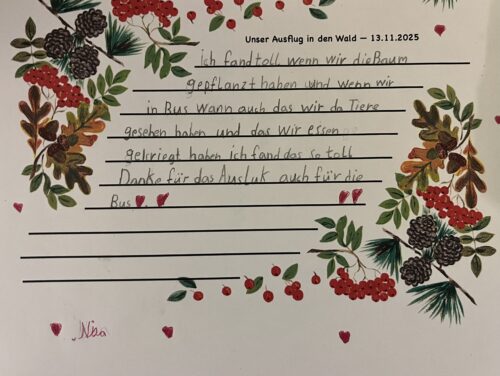 Unser Ausflug in den Wald – 13.11.2025
Ich fand toll wenn wir die Baum
gepflanzt haben und wenn wir
in Bus wann auch das wir da Tiere
gesehen haben und das wir essen
gekriegt haben ich fand das so toll
Danke für das Ausluk auch für die
Bus